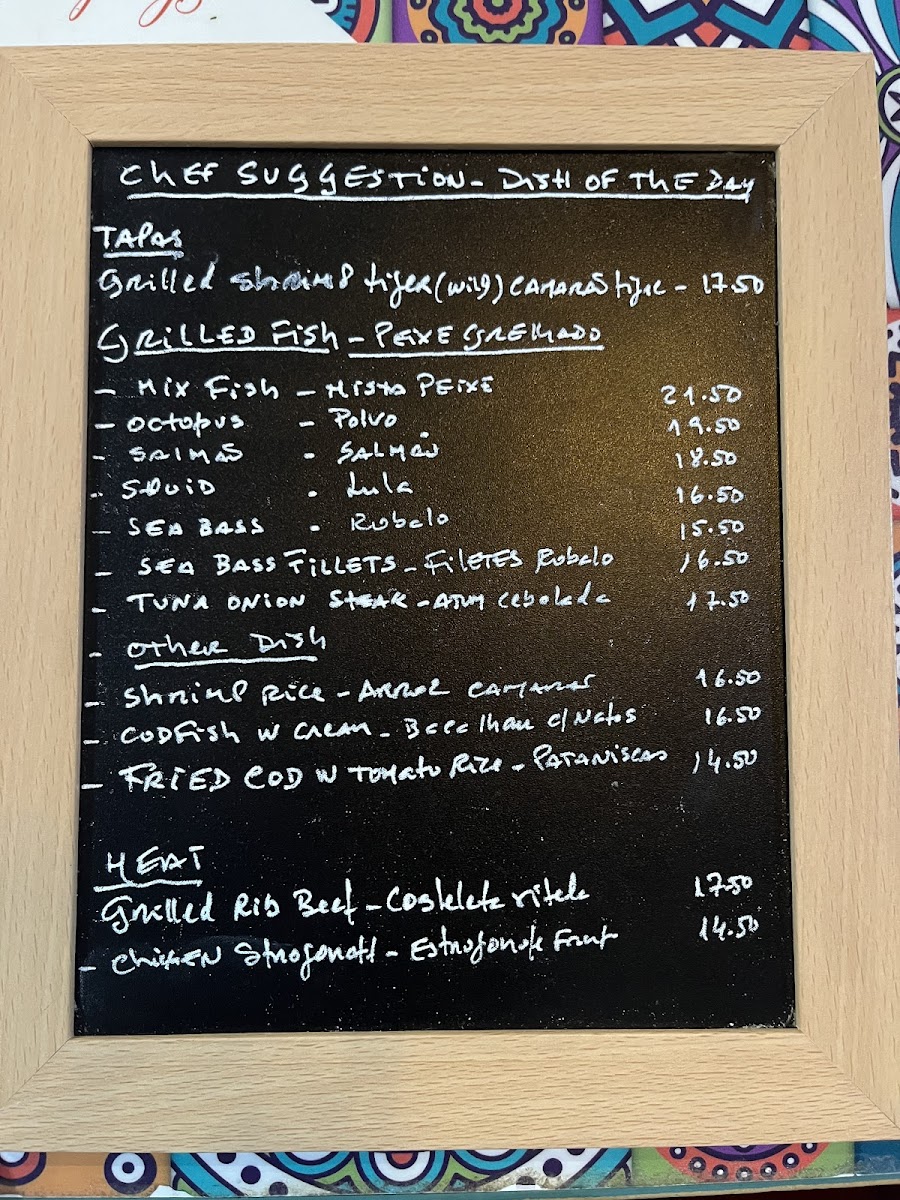 Chef SUGGESTION - DISH OF THE DAY
TAPAS
Grilled shrimp tiger (wild) CAMARÃO tigre - 17.50
GRILLED FISH - PEIXE GRELHADO
- MIX FISH - MISTO PEIXE 21.50
- OCTOPUS - POLVO 19.50
- SALMAÕ - SALMAÕ 18.50
- SQUID - Lula 16.50
- SEA BASS - Robalo 15.50
- SEA BASS FILLETS - FILETES Robalo 16.50
- TUNA ONION STEAK - ATUM Cebolada 17.50
- OTHER DISH
- SHRIMP RICE - ARROZ CAMARAO 16.50
- CODFISH W CREAM - Bacalhau c/ Natas 16.50
- FRIED COD W TOMATO RICE - PATANISCAS 14.50
MEAT
Grilled RIB Beef - Costeleta vitela 17.50
- CHICKEN Strogonoff - Estrogonofe Frut 14.50